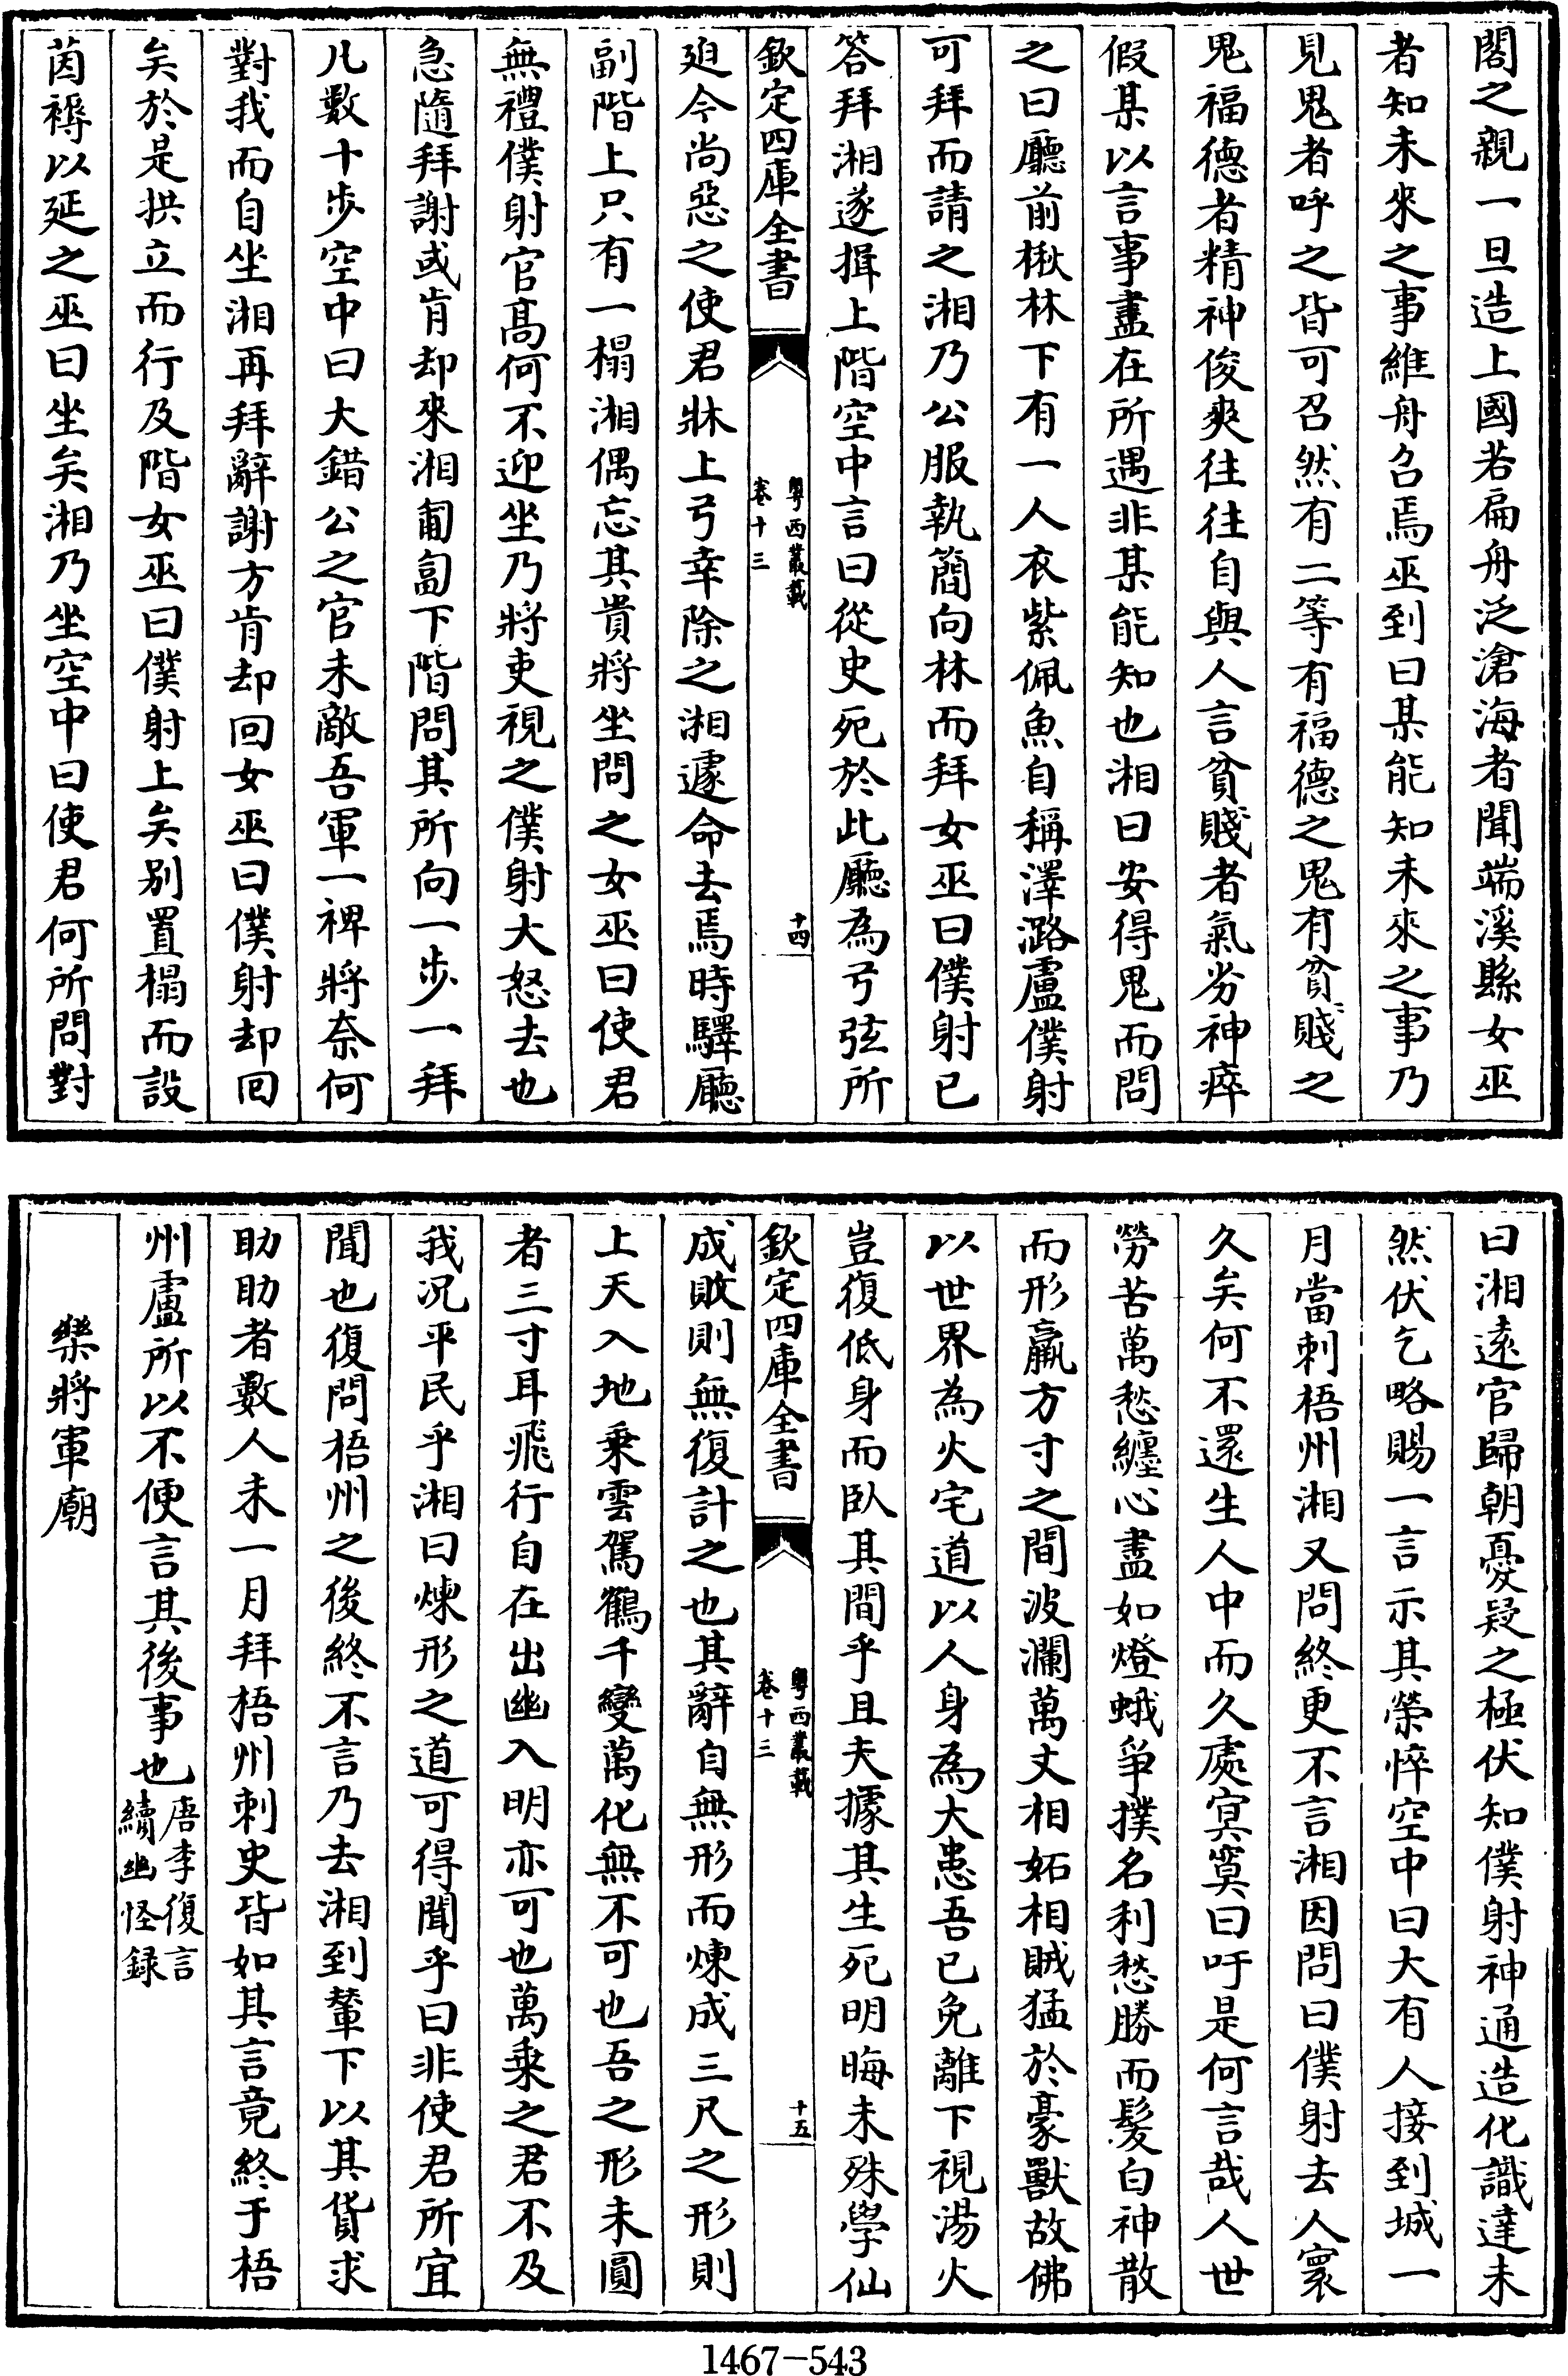 閣之親一旦造上國若扁舟泛滄海者聞端溪縣女巫
者知未來之事維舟召焉巫到曰某能知未來之事乃
見鬼者呼之皆可召然有二等有福德之鬼有貧賤之
鬼福德者精神俊爽往往自與人言貧賤者氣劣神瘁
假某以言事盡在所遇非某能知也湘曰安得鬼而問
之曰廳前楸林下有一人衣紫佩魚自稱澤潞盧僕射
可拜而請之湘乃公服執簡向林而拜女巫曰僕射已
答拜湘遂揖上階空中言曰從史死於此廳為弓弦所
欽定四庫全書
粤西叢載
卷十三
十四
廹今尚惡之使君牀上弓幸除之湘遽命去焉時驛廳
副階上只有一榻湘偶忘其貴將坐問之女巫曰使君
無禮僕射官髙何不迎坐乃將吏視之僕射大怒去也
急隨拜謝或肯却來湘匍匐下階問其所向一步一拜
凡數十步空中曰大錯公之官未敵吾軍一裨將奈何
對我而自坐湘再拜辭謝方肯却回女巫曰僕射却回
矣於是拱立而行及階女巫曰僕射上矣别置榻而設
茵褥以延之巫曰坐矣湘乃坐空中曰使君何所問對
曰湘遠官歸朝憂疑之極伏知僕射神通造化識達未
然伏乞略賜一言示其榮悴空中曰大有人接到城一
月當刺梧州湘又問終更不言湘因問曰僕射去人寰
久矣何不還生人中而久處㝠寞曰吁是何言哉人世
勞苦萬愁纏心盡如燈蛾爭撲名利愁勝而髮白神散
而形羸方寸之間波瀾萬丈相妬相賊猛於豪獸故佛
以世界為火宅道以人身為大患吾已免離下視湯火
豈復低身而臥其間乎且夫據其生死明晦未殊學仙
欽定四庫全書
粤西叢載
卷十三
十五
成敗則無復計之也其辭自無形而煉成三尺之形則
上天入地乘雲駕鶴千變萬化無不可也吾之形未圓
者三寸耳飛行自在出幽入明亦可也萬乘之君不及
我况平民乎湘曰煉形之道可得聞乎曰非使君所宜
聞也復問梧州之後終不言乃去湘到輦下以其貨求
助助者數人未一月拜梧州刺史皆如其言竟終于梧
州盧所以不便言其後事也唐李復言
續幽怪録
樂將軍廟
1467-543